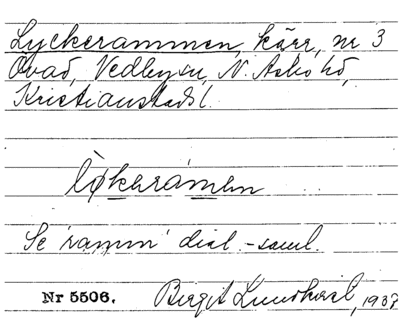 Lyckerammen, kärr, nr 3
Övad, Vedbysn, N. Åsbo hd,
Kristianstads l.
lø̀keramen
Se 'ramm' dial.-saml.
Nr 5506. Birgit Lundkvist, 1937